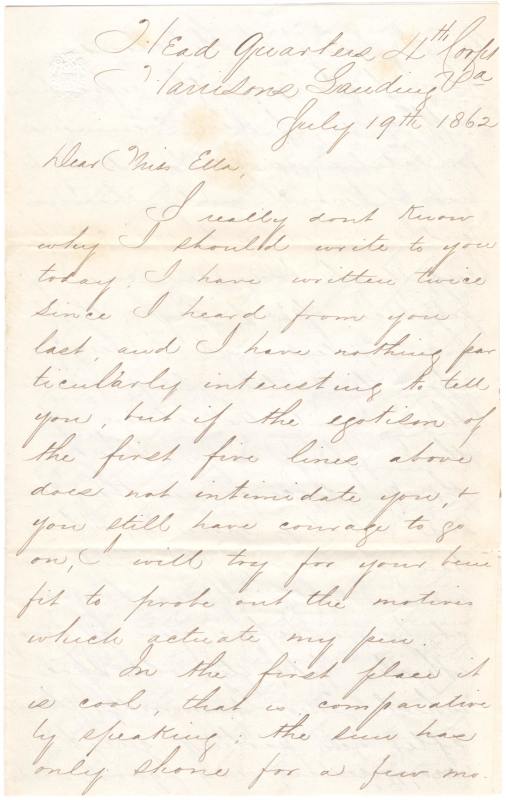 Head Quarters 4th Corps
Harrisons Landing Va
July 19th 1862
Dear Miss Ella,
I really dont know
why I should write to you
today. I have written twice
since I heard from you
last, and I have nothing par
ticularly interesting to tell
you, but if the egotism of
the first five lines above
does not intimidate you, &
you still have courage to go
on, I will try for your bene
fit to probe out the motives
which actuate my pen.
In the first place it
is cool, that is comparative
ly speaking; the sun has
only shone for a few mo.